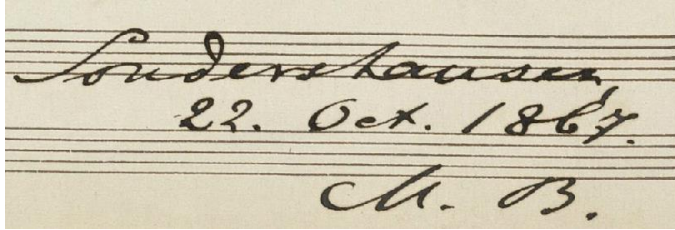 Sondershausen,
22. Oct. 1867.
M. B.